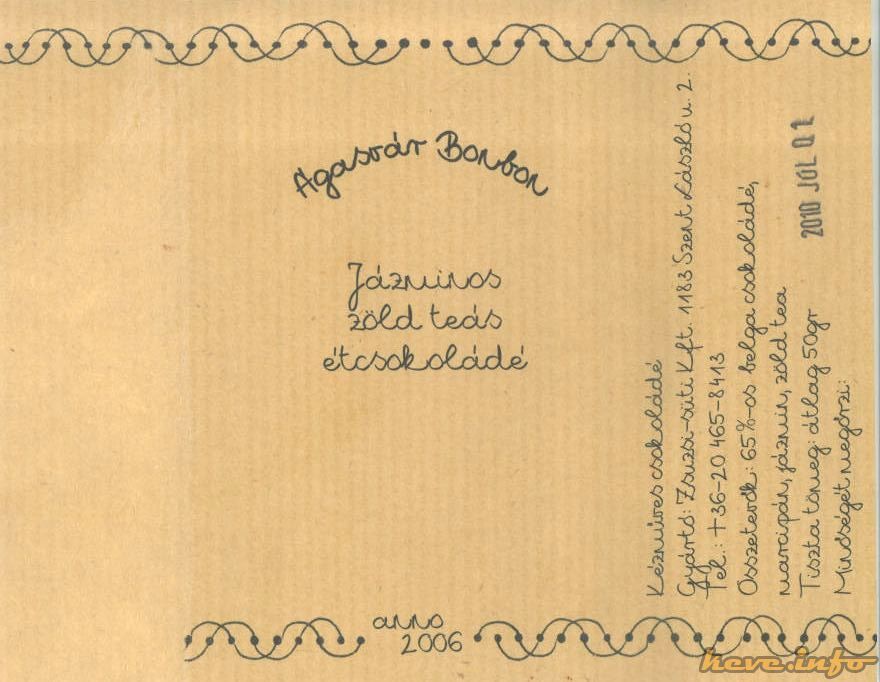 Ágasvár Bonbon
Jázminos
zöld teás
étcsokoládé
anno
2006
Kézműves csokoládé
Gyártó: Zsuzsi-süti Kft. 1183 Szent László u. 2.
Tel.: +36-20 465-8413
Összetevők: 65%-os belga csokoládé,
marcipán, jázmin, zöld tea
Tiszta tömeg: átlag 50gr
Minőségét megőrzi:
2010 JÚL 01
keve.info